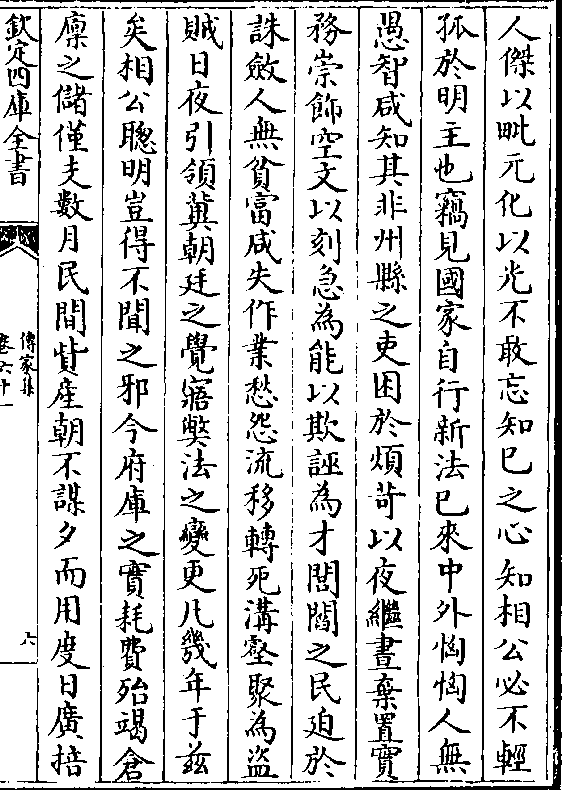 人傑以毗元化以光不敢忘知己之心知相公必不輕
孤於明主也竊見國家自行新法已來中外恟恟人無
愚智咸知其非州縣之吏困於煩苛以夜繼晝棄置實
務崇飾空文以刻急為能以欺誣為才閭閻之民迫於
誅斂人無貧富咸失作業愁怨流移轉死溝壑聚為盗
賊日夜引領冀朝廷之覺寤獘法之變更凡幾年于兹
矣相公聰明豈得不聞之邪今府庫之實耗費殆竭倉
廪之儲僅支數月民間貲産朝不謀夕而用度日廣掊
欽定四庫全書
傳家集
卷六十一
六